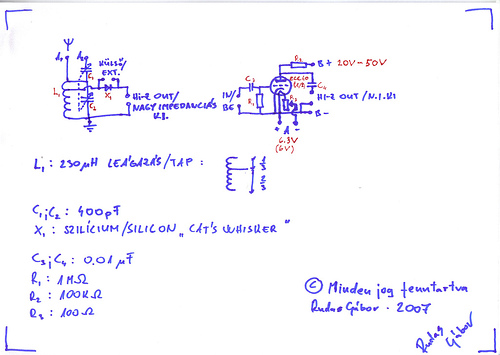 A₁ A₂
KÜLSŐ/
EXT.
C₁
L₁
X₁
C₂
HI-Z OUT/
NAGY IMPEDANCIÁS
K.I.
R₂ B+ 20V-50V
C₃
C₄
IN/
BE
R₁
R₃
HI-Z OUT/N.I.KI
B-
+ A -
6.3V
(6V)
L₁ : 230µH LEÁGAZÁS/TAP :
1/3
2/3
C₁;C₂ : 400pF
X₁ : SZILÍCIUM/SILICON „CAT'S WHISKER"
C₃;C₄ : 0.01µF
R₁ : 1MΩ
R₂ : 100KΩ
R₃ : 100Ω
© Minden jog fenntartva
Rudas Gábor - 2007
Rudas
Gábor